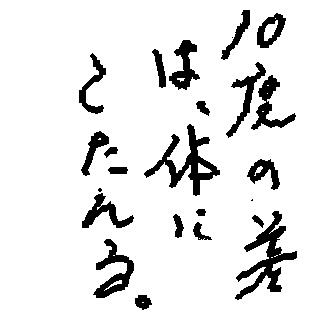 10度の差
は、体に
こたえる。